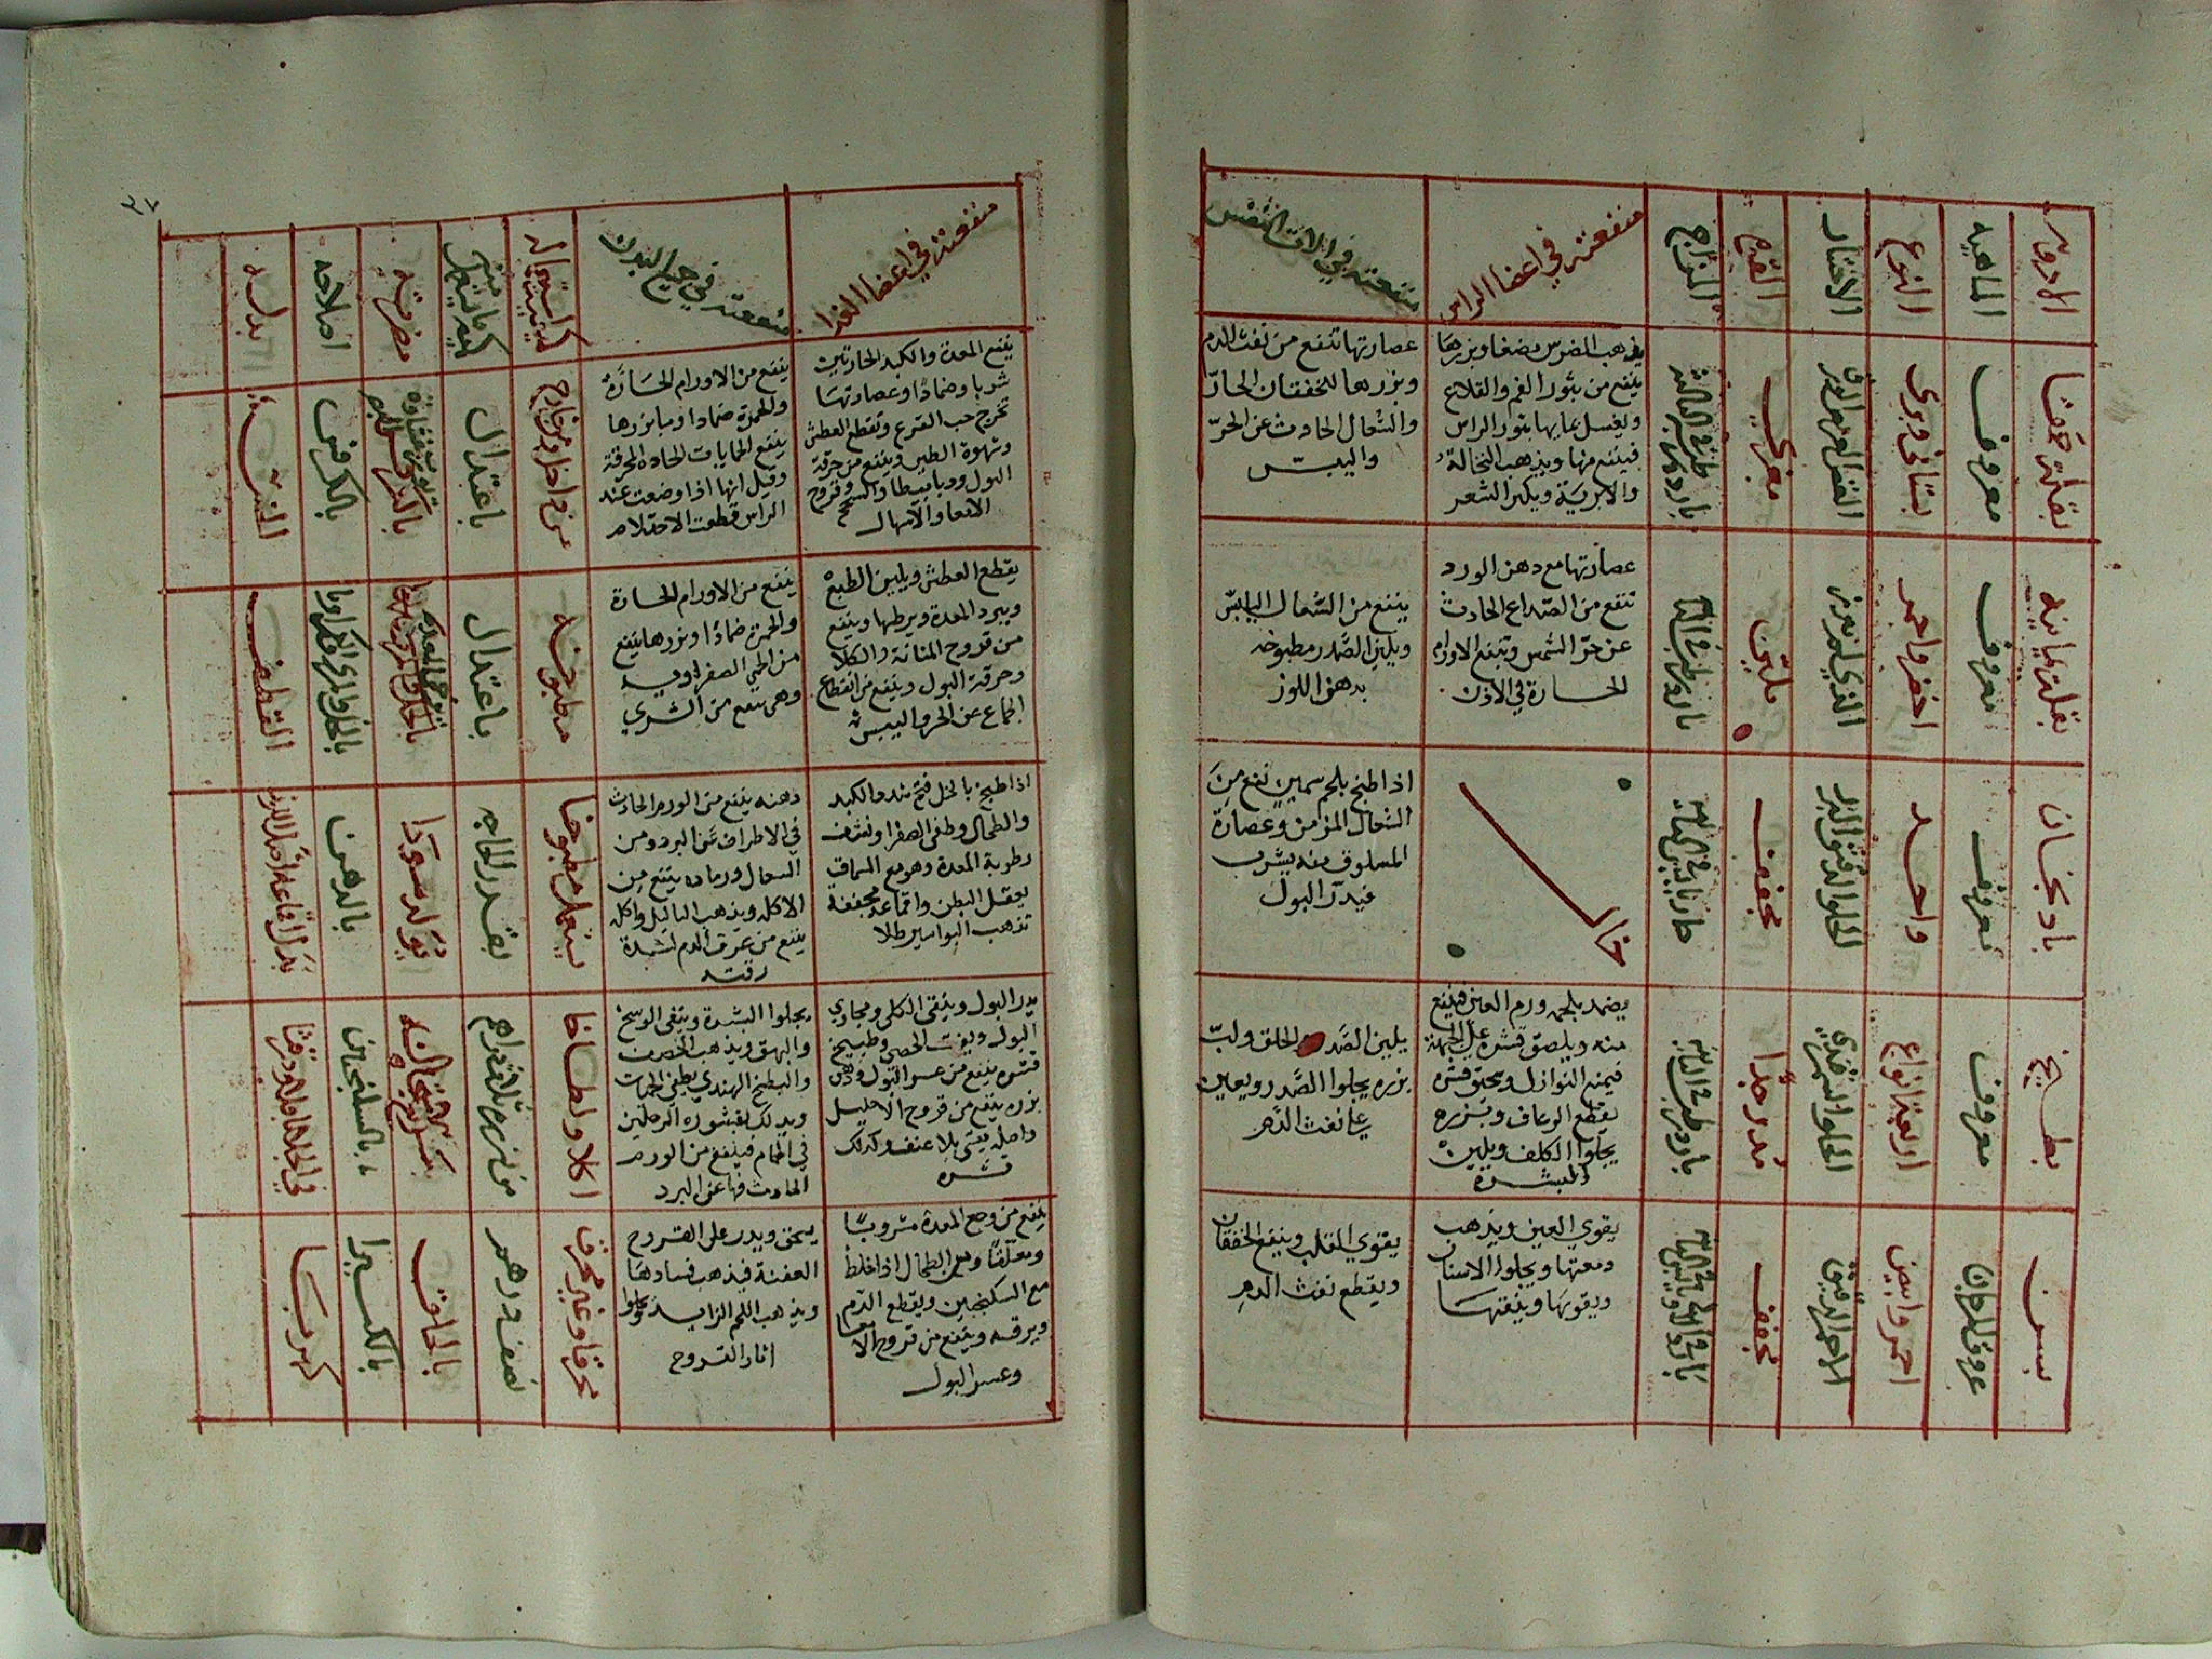 الادوية
الماهية
النوع
الاختيار
القوة
المزاج
منفعته في اعضا الراس
منفعته في الات النفس
بقلة حمقا
معروف
بستاني وبري
مغري
يذهب الضرس مضغا وبزرها
ينفع من بثور الفم والقلاع
ويغسل بمايها بثور الراس
فينفع منها ويذهب النخالة
والابرية ويكثر الشعر
عصارتها تنفع من نفث الدم
وبزرها للخفقان الحار
والسعال الحادث عن الحر
واليبس
بقلة يمانية
معروف
اخضر واحمر
ملين
عصارتها مع دهن الورد
تنفع من الصداع الحادث
عن حر الشمس وتنفع الاورام
الحارة في الاذن
ينفع من السعال اليابس
ويلين الصدر مطبوخه
بدهن اللوز
بادنجان
معروف
واحد
مجفف
حار يابس في الثانية
خال
اذا طبخ بلحم سمين نفع من
السعال المزمن وعصارة
المسلوق منه يشرب
فيدر البول
بطيخ
معروف
اربعة انواع
مدر جدا
بارد رطب في الثانية
يضمد بلحمه ورم العين فينفع
منه ويلصق قشره علي الجبهة
فيمنع النوازل وسحيق قشره
يقطع الرعاف وبزره
يجلوا الكلف ويلين
البشرة
يلين الصدر والحلق ولب
بزره يجلوا الصدر ويعين
علي نفث الدم
بسد
عروق المرجان
احمر وابيض
الاحمر الدقيق
مجفف
يقوي العين ويذهب
دمعتها ويجلوا الاسنان
ويقويها وينقيها
يقوي القلب وينفع الخفقان
ويقطع نفث الدم
٣٧
منفعته في اعضا الغذا
منفعته في جميع البدن
كيفية استعماله
كمية ما يستعمل منه
مضرته
اصلاحه
بدله
ينفع المعدة والكبد الحارتين
شربا وضمادا وعصارتها
تخرج حب القرع وتقطع العطش
وشهوة الطين وينفع من حرقة
البول ودياسيطا والسحج وقروح
الامعا والاسهال
ينفع من الاورام الحارة
والحمرة ضمادا ومابزرها
ينفع الحمايات الحاده المحرقة
وقيل انها اذا وضعت عند
الراس قطعت الاحتلام
من داخل ومن خارج
باعتدال
بالكرفس
يقطع العطش ويلين الطبع
ويبرد المعدة ويرطبها وينفع
من قروح المثانة والكلا
وحرقة البول وينفع من انقطاع
الجماع عن الحر واليبس
ينفع من الاورام الحارة
والحمرة ضمادا وبزرها ينفع
من الحمي الصفراوية
وهي تنفع من الشري
مطبوخه
باعتدال
القطف
اذا طبخ بالخل فتح سدد الكبد
والطحال وطفي الصفرا ونشف
رطوبة المعدة وهو مع السماق
يعقل البطن واقماعه مجففة
تذهب البواسير طلا
دهنه ينفع من الورم الحادث
في الاطراف عن البرد ومن
السعال ورماده ينفع من
الاكله ويذهب الثاليل واكله
ينفع من عرق الدم لشدة
رقته
يستعمل مطبوخا
بقدر الحاجه
يولد سودا
بالدهن
يدر البول وينقي الكلي ومجاري
البول ويفتت الحصي وطبيخ
قشره ينفع من عسر البول ودهن
بزره ينفع من قروح الاحليل
واصله يقيي بلا عنف وكذلك
قشره
يجلوا البشرة وينقي الوسخ
والبهق ويذهب الحصف
والبطيخ الهندي يطفي الحميات
ويدلك بقشوره الرجلين
في الحمام فينفع من الورم
الحادث فيها عن البرد
اكلا ولطاخا
من بزره ثلاثة دراهم
بالسكنجبين
ينفع من وجع المعدة مشروبا
ومعلقا ومن الطحال اذا خلط
مع السكنجبين ويقطع الدم
ويرقه وينفع من قروح الامعا
وعسر البول
يسحق ويدر علي القروح
العفنة فيذهب فسادها
ويذهب اللحم الزايد ويجلوا
اثار القروح
محرقا وغير محرق
نصف درهم
بالكثيرا
كهربا